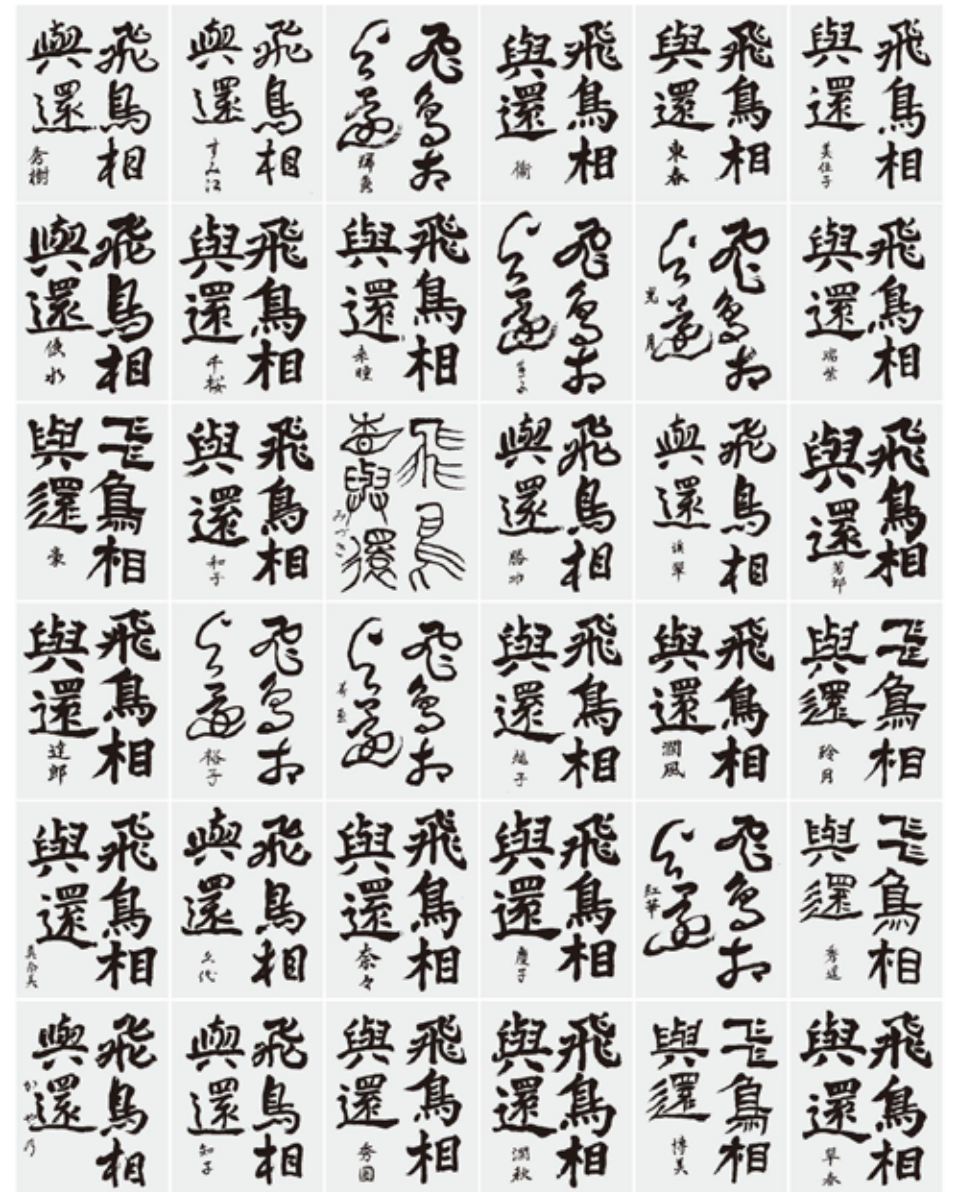 飛鳥相
與還
秀樹
飛鳥相
與還
すみ江
飛鳥相
與還
飛鳥相
與還
飛鳥相
與還
東春
飛鳥相
與還
飛鳥相
與還
飛鳥相
與還
千桜
飛鳥相
與還
飛鳥相
與還
飛鳥相
與還
光月
飛鳥相
與還
瑞紫
飛鳥相
與還
豪
飛鳥相
與還
和子
飛鳥
相與還
みづき
飛鳥相
與還
勝功
飛鳥相
與還
飛鳥相
與還
芳邨
飛鳥相
與還
達郎
飛鳥相
與還
裕子
飛鳥相
與還
飛鳥相
與還
飛鳥相
與還
潤風
飛鳥相
與還
玲月
飛鳥相
與還
真奈美
飛鳥相
與還
久代
飛鳥相
與還
奈々
飛鳥相
與還
慶子
飛鳥相
與還
紅華
飛鳥相
與還
飛鳥相
與還
かや乃
飛鳥相
與還
知子
飛鳥相
與還
秀園
飛鳥相
與還
潤秋
飛鳥相
與還
博美
飛鳥相
與還